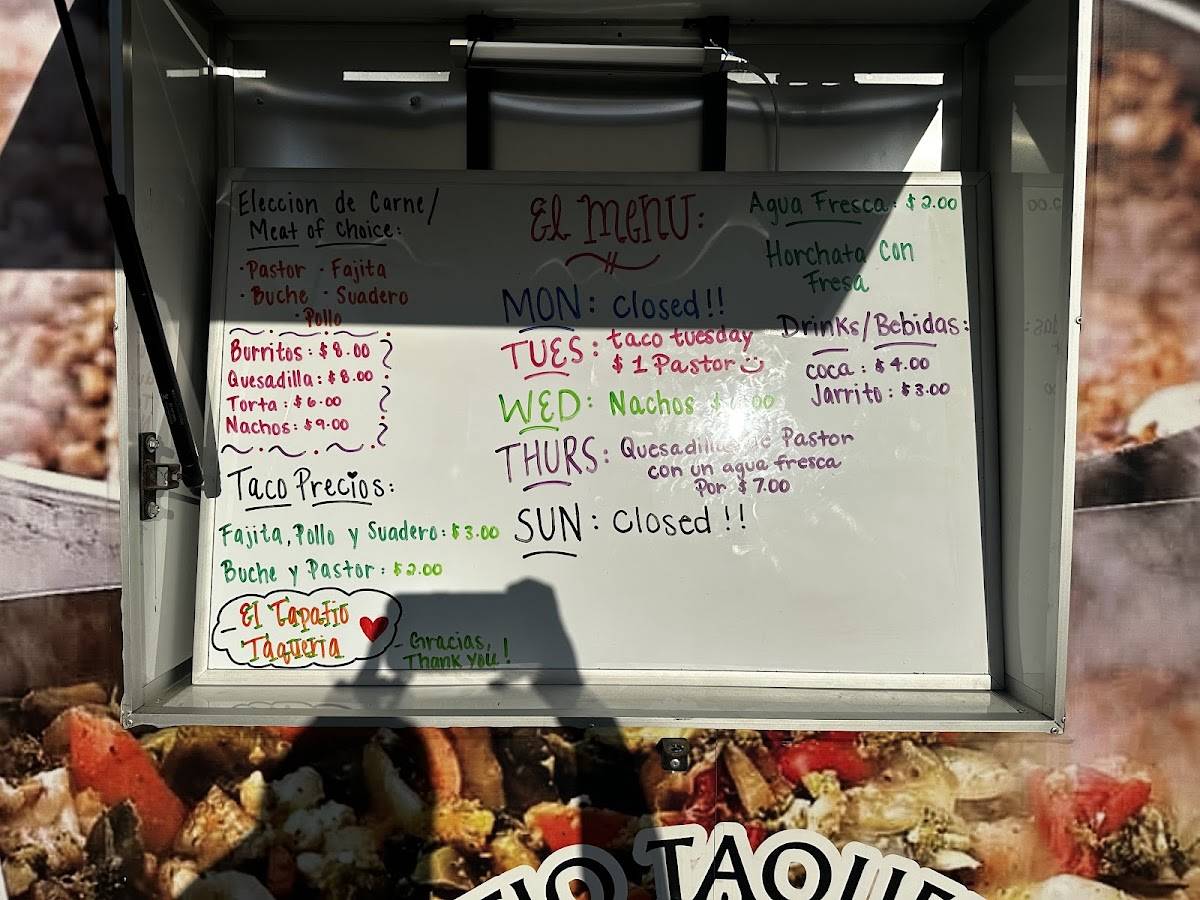 Eleccion de Carne/
Meat of choice:
· Pastor · Fajita
· Buche · Suadero
· Pollo
Burritos: $8.00
Quesadilla: $8.00
Torta: $6.00
Nachos: $9.00
Taco Precios:
Fajita, Pollo y Suadero: $3.00
Buche y Pastor: $2.00
El Tapatio
Taqueria
- Gracias,
Thank you!
El MENU:
MON: Closed!!
TUES: taco tuesday
$1 Pastor
WED: Nachos
THURS: Quesadillas de Pastor
con un agua fresca
Por $7.00
SUN: Closed!!
Agua Fresca: $2.00
Horchata Con
Fresa
Drinks/Bebidas:
coca: $4.00
Jarrito: $3.00